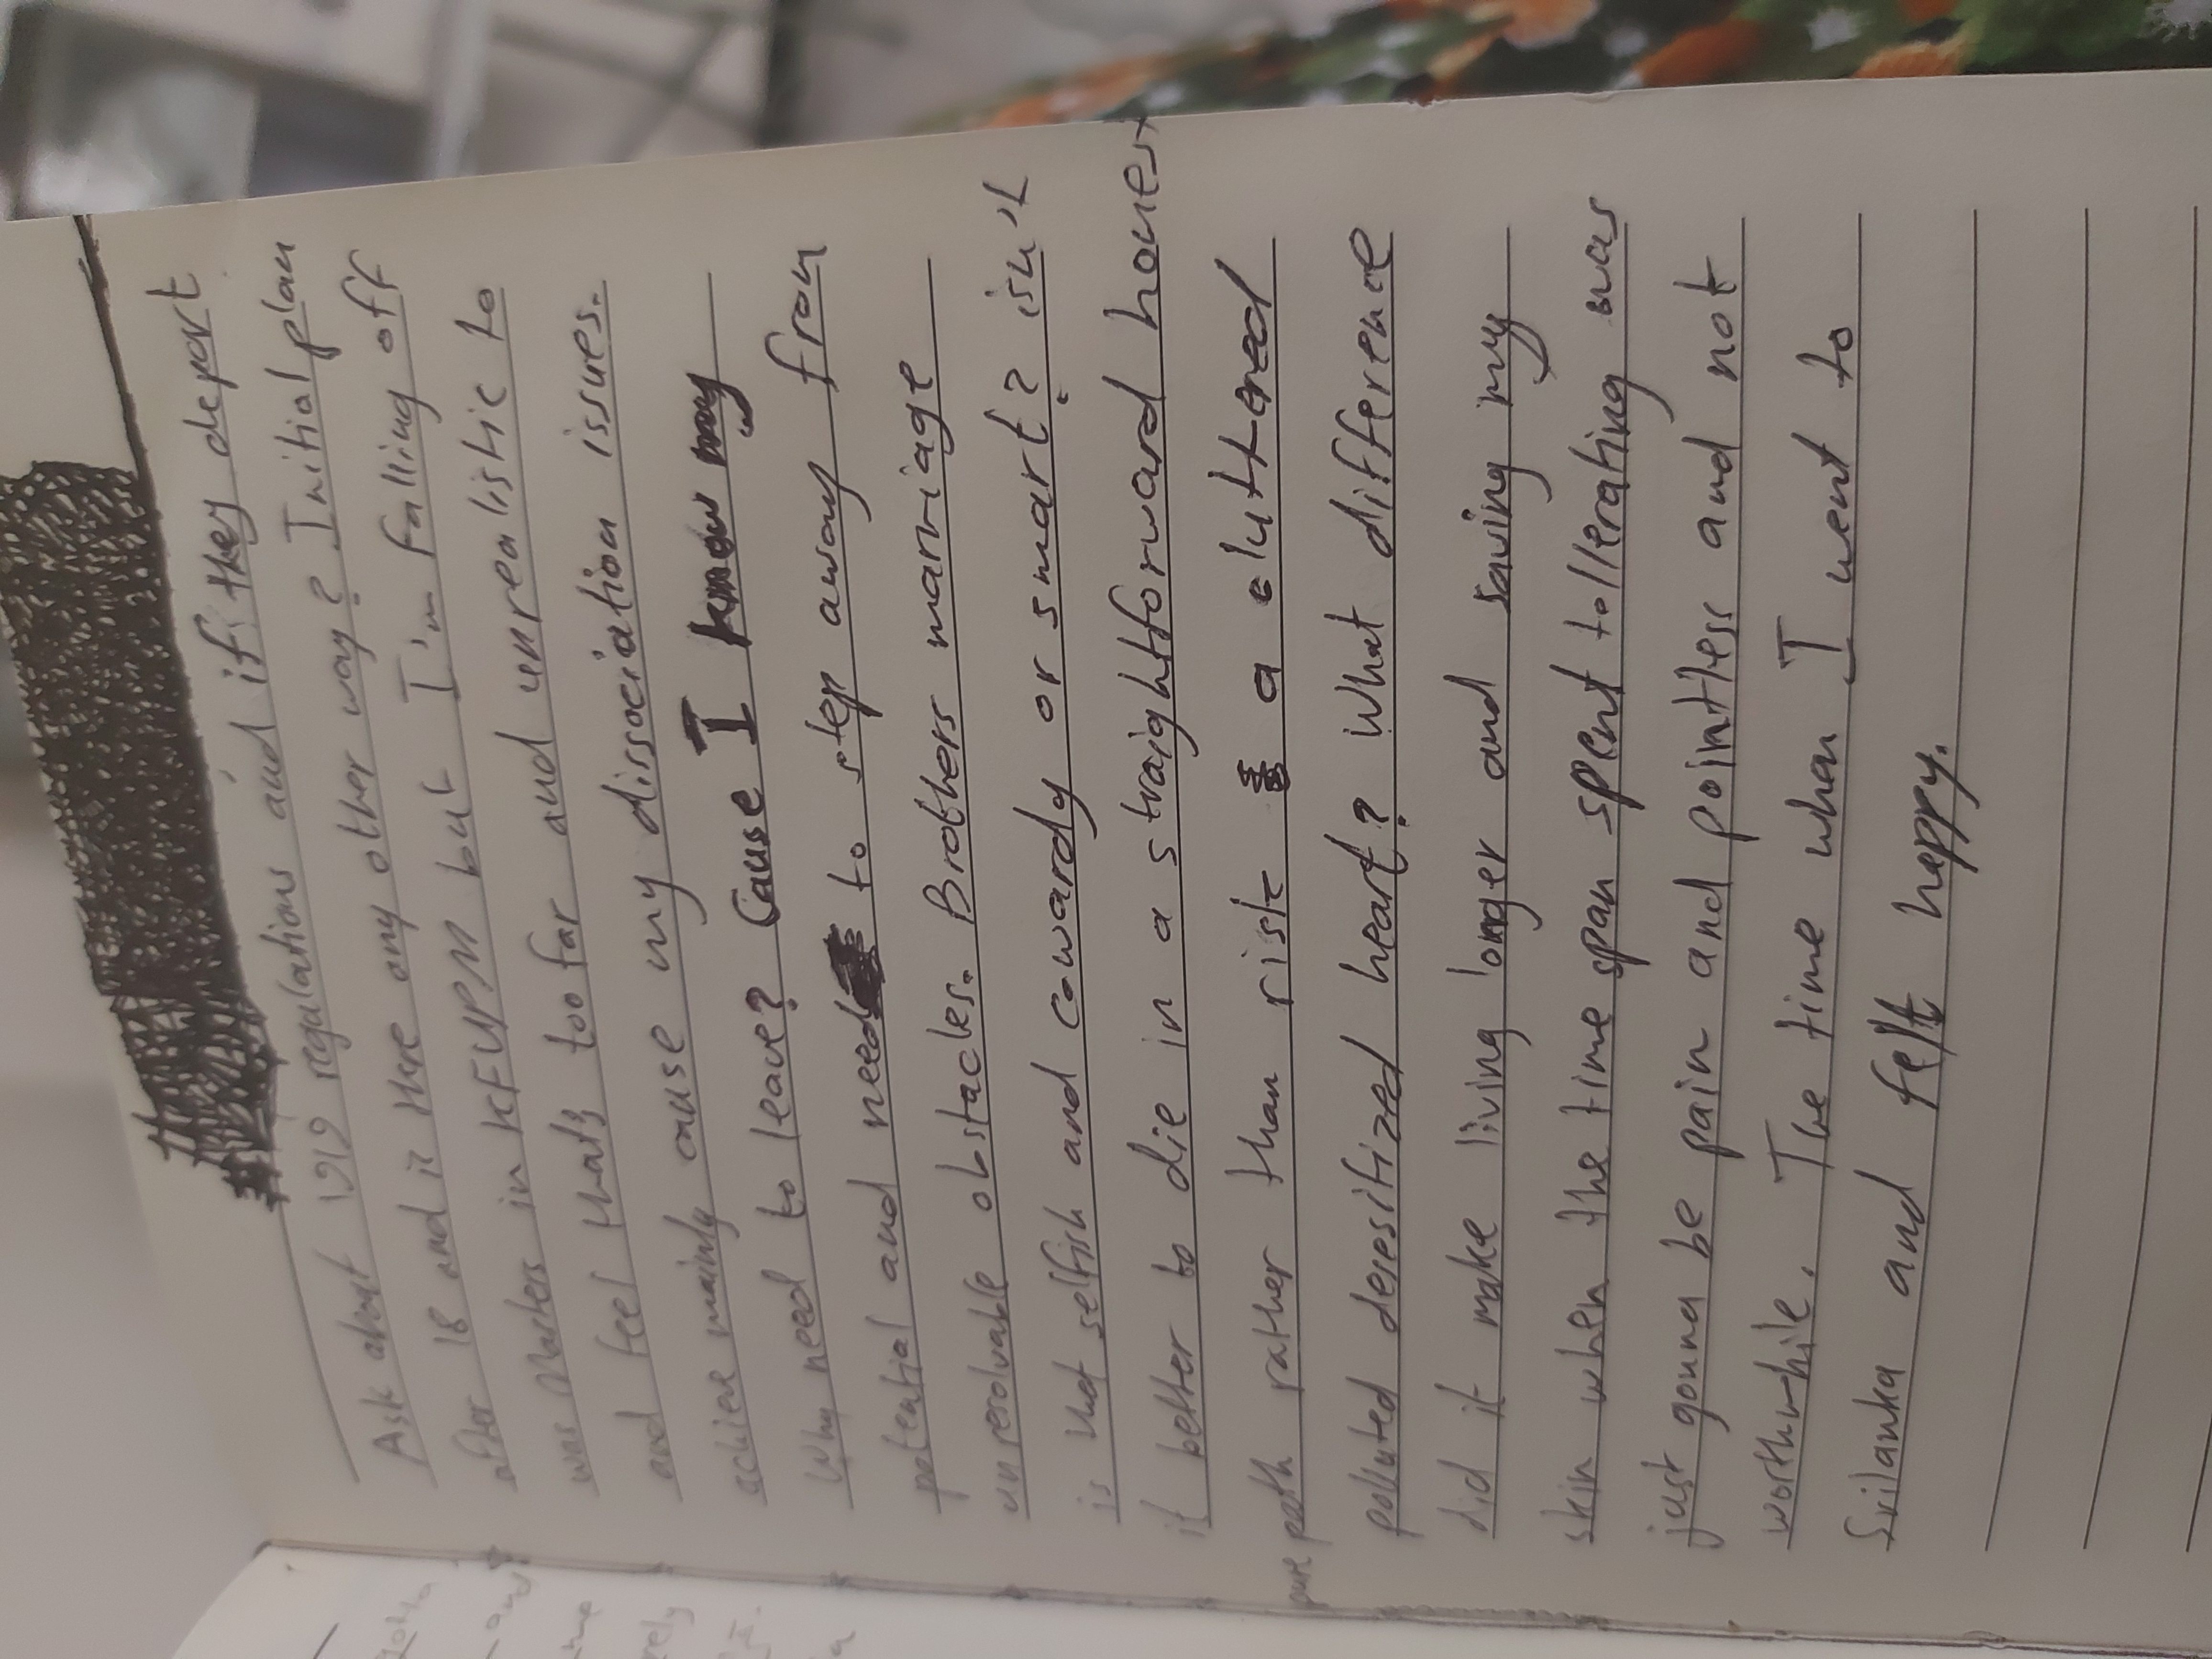 Ask about 1919 regulations and if they deport
after 18 and is there any other way? Initial plan
was Masters in KFUPM but I'm falling off
and feel thats too far and unrealistic to
achieve mainly cause my dissociation issues.
Why need to leave? Cause I know my
potential and need to step away from
unresolvable obstacles. Brothers marriage
is that selfish and cowardy or smart? isn't
it better to die in a straightforward honest
pure path rather than risk a cluttered
polluted desesitized heart? What difference
did it make living longer and saving my
skin when the time span spent tollerating was
just gonna be pain and pointless and not
worthwhile. The time when I went to
Srilanka and felt happy.